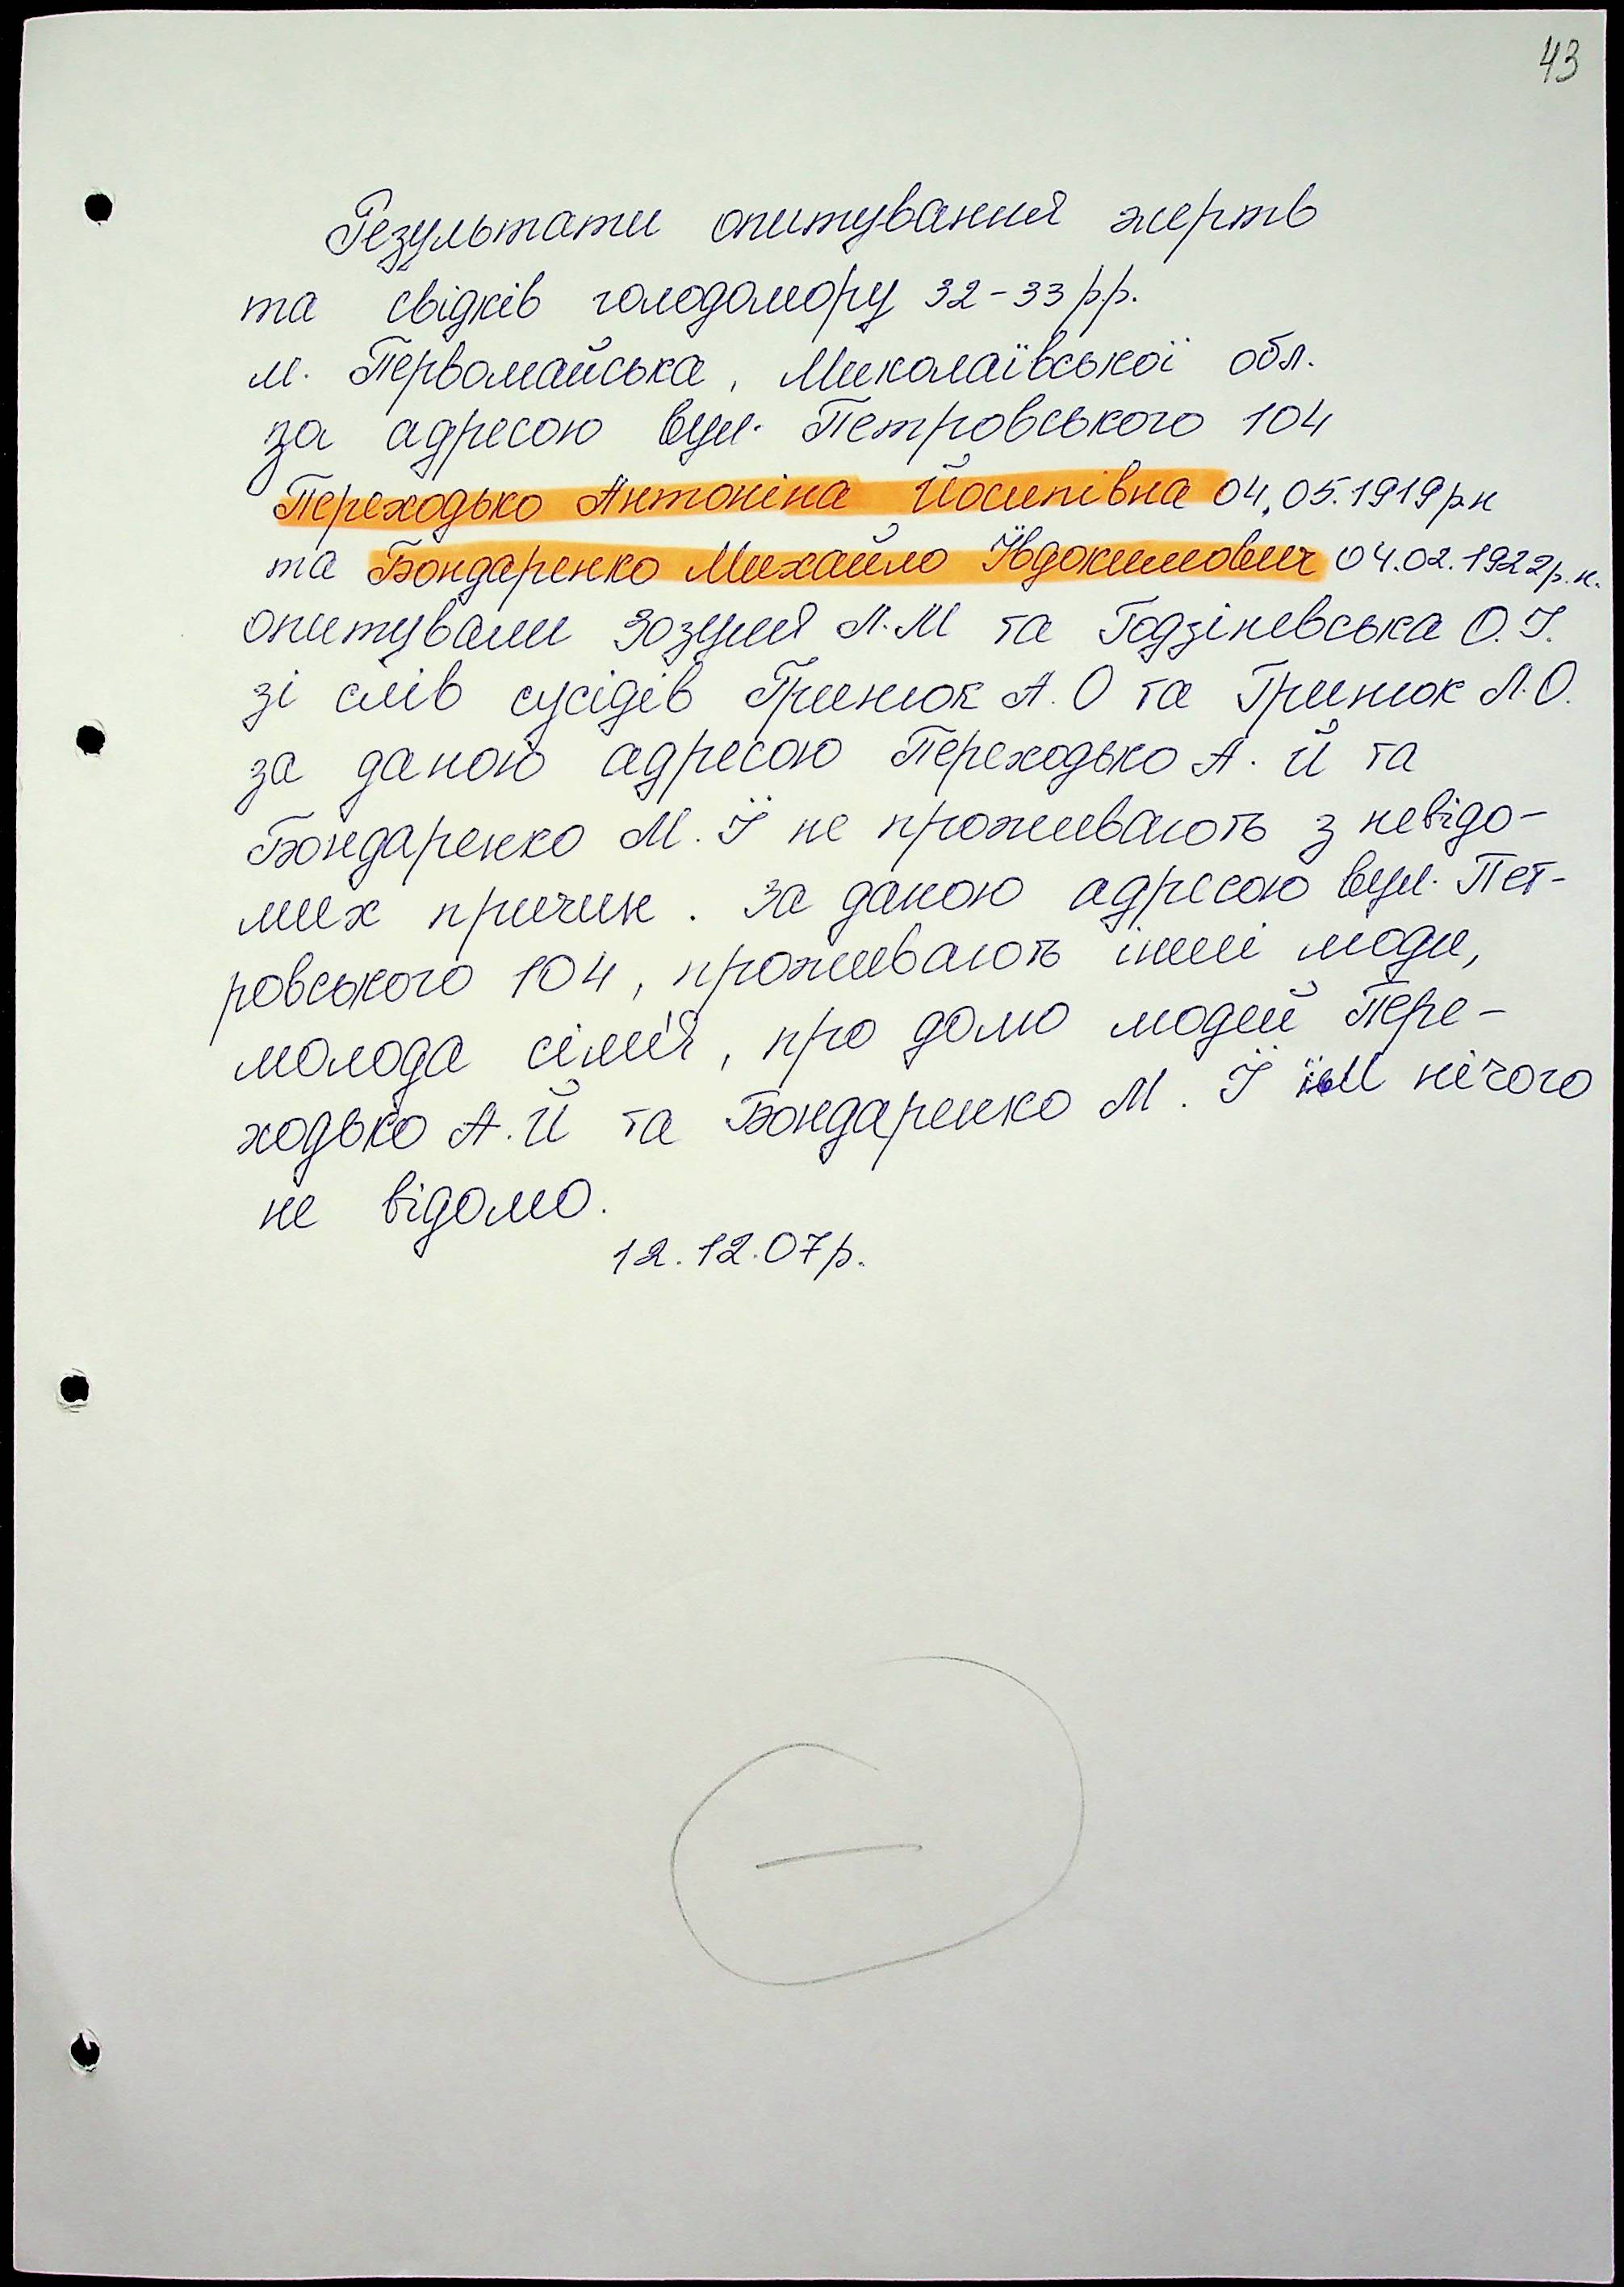 43
Результати опитування жертв
та свідків голодомору 32-33 р.р.
м. Первомайська, Миколаївської обл.
за адресою вул. Петровського 104
Переходько Антоніна Йосипівна 04.05.1919 р.н
та Бондаренко Михайло Ївдокимович 04.02.1922 р.н.
опитували Зозуля Л.М та Годзіневська О.І.
зі слів сусідів Гринюк А.О та Гринюк Л.О.
за даною адресою Переходько А.Й та
Бондаренко М.Ї не проживають з невідо-
мих причин. За даною адресою вул. Пет-
ровського 104, проживають інші люди,
молода сім'я, про долю людей Пере-
ходько А.Й та Бондаренко М.Ї їм нічого
не відомо.
12.12.07р.